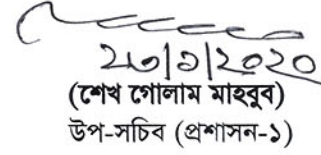 ২৩|১|২০২০
(শেখ গোলাম মাহবুব)
উপ-সচিব (প্রশাসন-১)